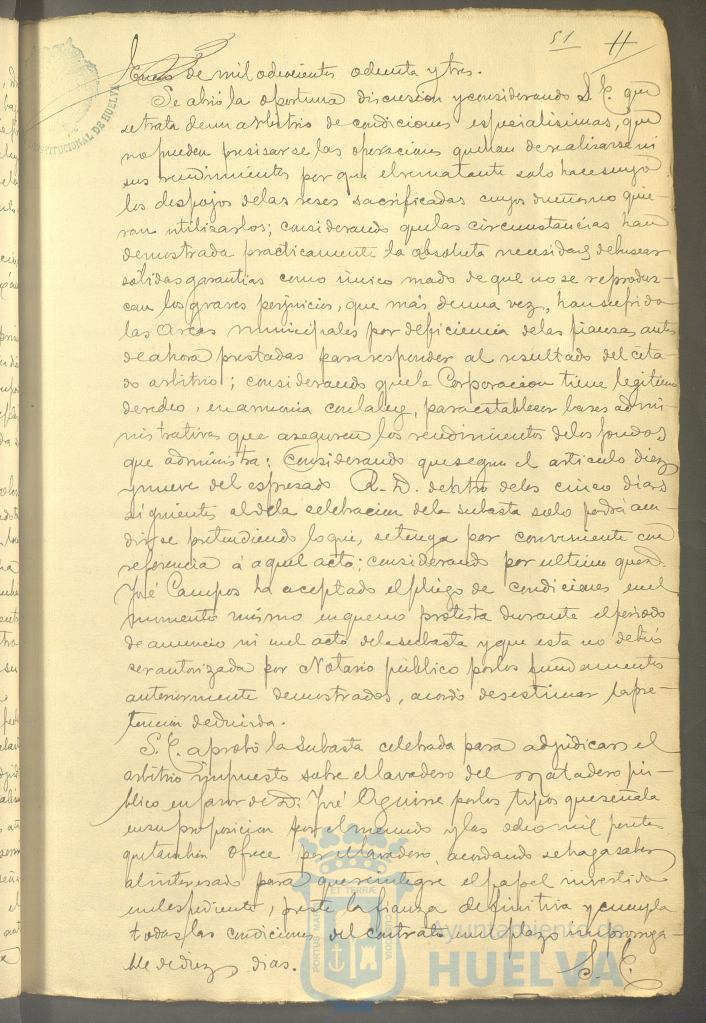 51 11
Enero de mil ochocientos ochenta y tres.
Se abrió la oportuna discusion y considerando S. E. que
se trata de un arbitrio de condiciones especialisimas, que
no pueden precisarse las operaciones que han de realizarse ni
sus rendimientos por que el rematante solo hace suyo
los despojos de las reses sacrificadas cuyos dueños no quie-
ran utilizarlos; considerando que las circunstancias han
demostrado practicamente la absoluta necesidad de buscar
sólidas garantias como único modo de que no se reproduz-
can los graves perjuicios, que más de una vez, han sufrido
las Arcas municipales por deficiencia de las fianzas antes
de ahora prestadas para responder al resultado del cita-
do arbitrio; considerando que la Corporacion tiene legitimo
derecho, en armonia con la ley, para establecer bases admi-
nistrativas que aseguren los rendimientos de los fondos
que administra: Considerando que segun el articulo diez
y nueve del espresado R. D. dentro de los cinco dias
siguientes al de la celebracion de la subasta solo podrá acu-
dirse pretendiendo lo que, se tenga por conveniente con
referencia á aquel acto; considerando por ultimo que D.
José Campos ha aceptado el pliego de condiciones en el
momento mismo en que no protesta durante el periodo
de anuncio ni en el acto de la subasta y que esta no debió
ser autorizada por Notario público por los fundamentos
anteriormente demostrados, acordó desestimar la pre-
tension deducida.
S. E. aprobó la subasta celebrada para adjudicar el
arbitrio impuesto sobre el lavadero del matadero pú-
blico en favor de D. José Aguirre por los tipos que señala
en su proposicion por el menudo y las ocho mil pesetas
que tambien ofrece por el lavadero, acordando se haga saber
al interesado para que reintegre el papel invertido
en el espediente, preste la fianza definitiva y cumpla
todas las condiciones del contrato en el plazo improrroga-
ble de diez dias.
S. E.
CONSTITUCIONAL DE HUELVA
PORTUS MARIS ET TERRÆ CUSTODIA
Ayuntamiento de
HUELVA